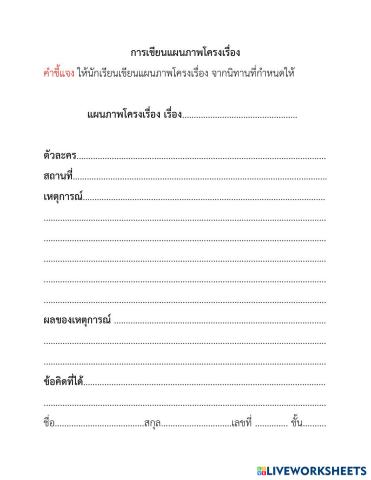 การเขียนแผนภาพโครงเรื่อง
คำชี้แจง ให้นักเรียนเขียนแผนภาพโครงเรื่อง จากนิทานที่กำหนดให้
แผนภาพโครงเรื่อง เรื่อง.................................................
ตัวละคร...........................................................................................................
สถานที่.............................................................................................................
เหตุการณ์........................................................................................................
.........................................................................................................................
.........................................................................................................................
.........................................................................................................................
.........................................................................................................................
.........................................................................................................................
ผลของเหตุการณ์ ...........................................................................................
.........................................................................................................................
.........................................................................................................................
ข้อคิดที่ได้........................................................................................................
.........................................................................................................................
ชื่อ......................................สกุล..............................เลขที่ .............. ชั้น..........
LIVEWORKSHEETS